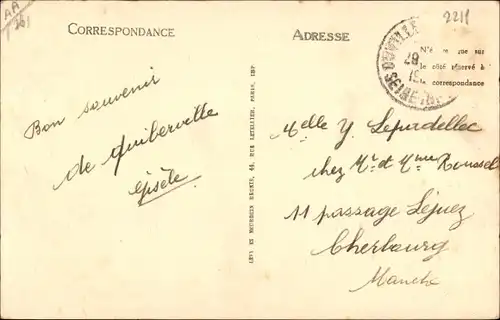 AA
CORRESPONDANCE
ADRESSE
2211
OUVILLE
SEINE
28
N'é que sur
le côté réservé à
correspondance
Bon souvenir
de Quiberville
Gisèle
LÉVY ET NEURDEIN RÉUNIS, 44, RUE LETELLIER, PARIS, IMP
Melle Y. Lepurdellec
chez Mr et Mme Roussel
11 passage Lejuez
Cherbourg
Manche